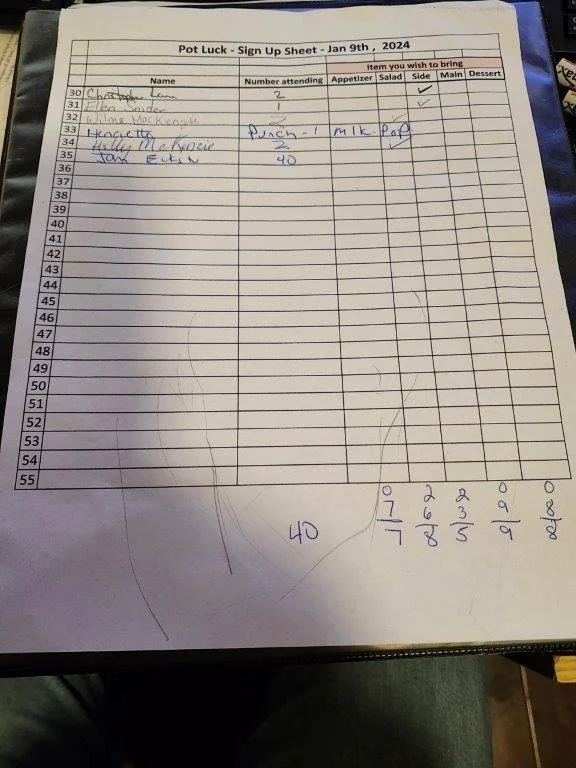 Pot Luck - Sign Up Sheet - Jan 9th , 2024
Item you wish to bring
Name Number attending Appetizer Salad Side Main Dessert
30 2 ✓
31 Ellen Snider 1 ✓
32 Wilma MacKenzie 2 ✓
33 Henrietta Punch - 1 milk - Pop
34 Holly McKenzie 2 ✓
35 40
36
37
38
39
40
41
42
43
44
45
46
47
48
49
50
51
52
53
54
55
0 2 2 0 0
40 7 6 3 9 8
7 8 5 9 8